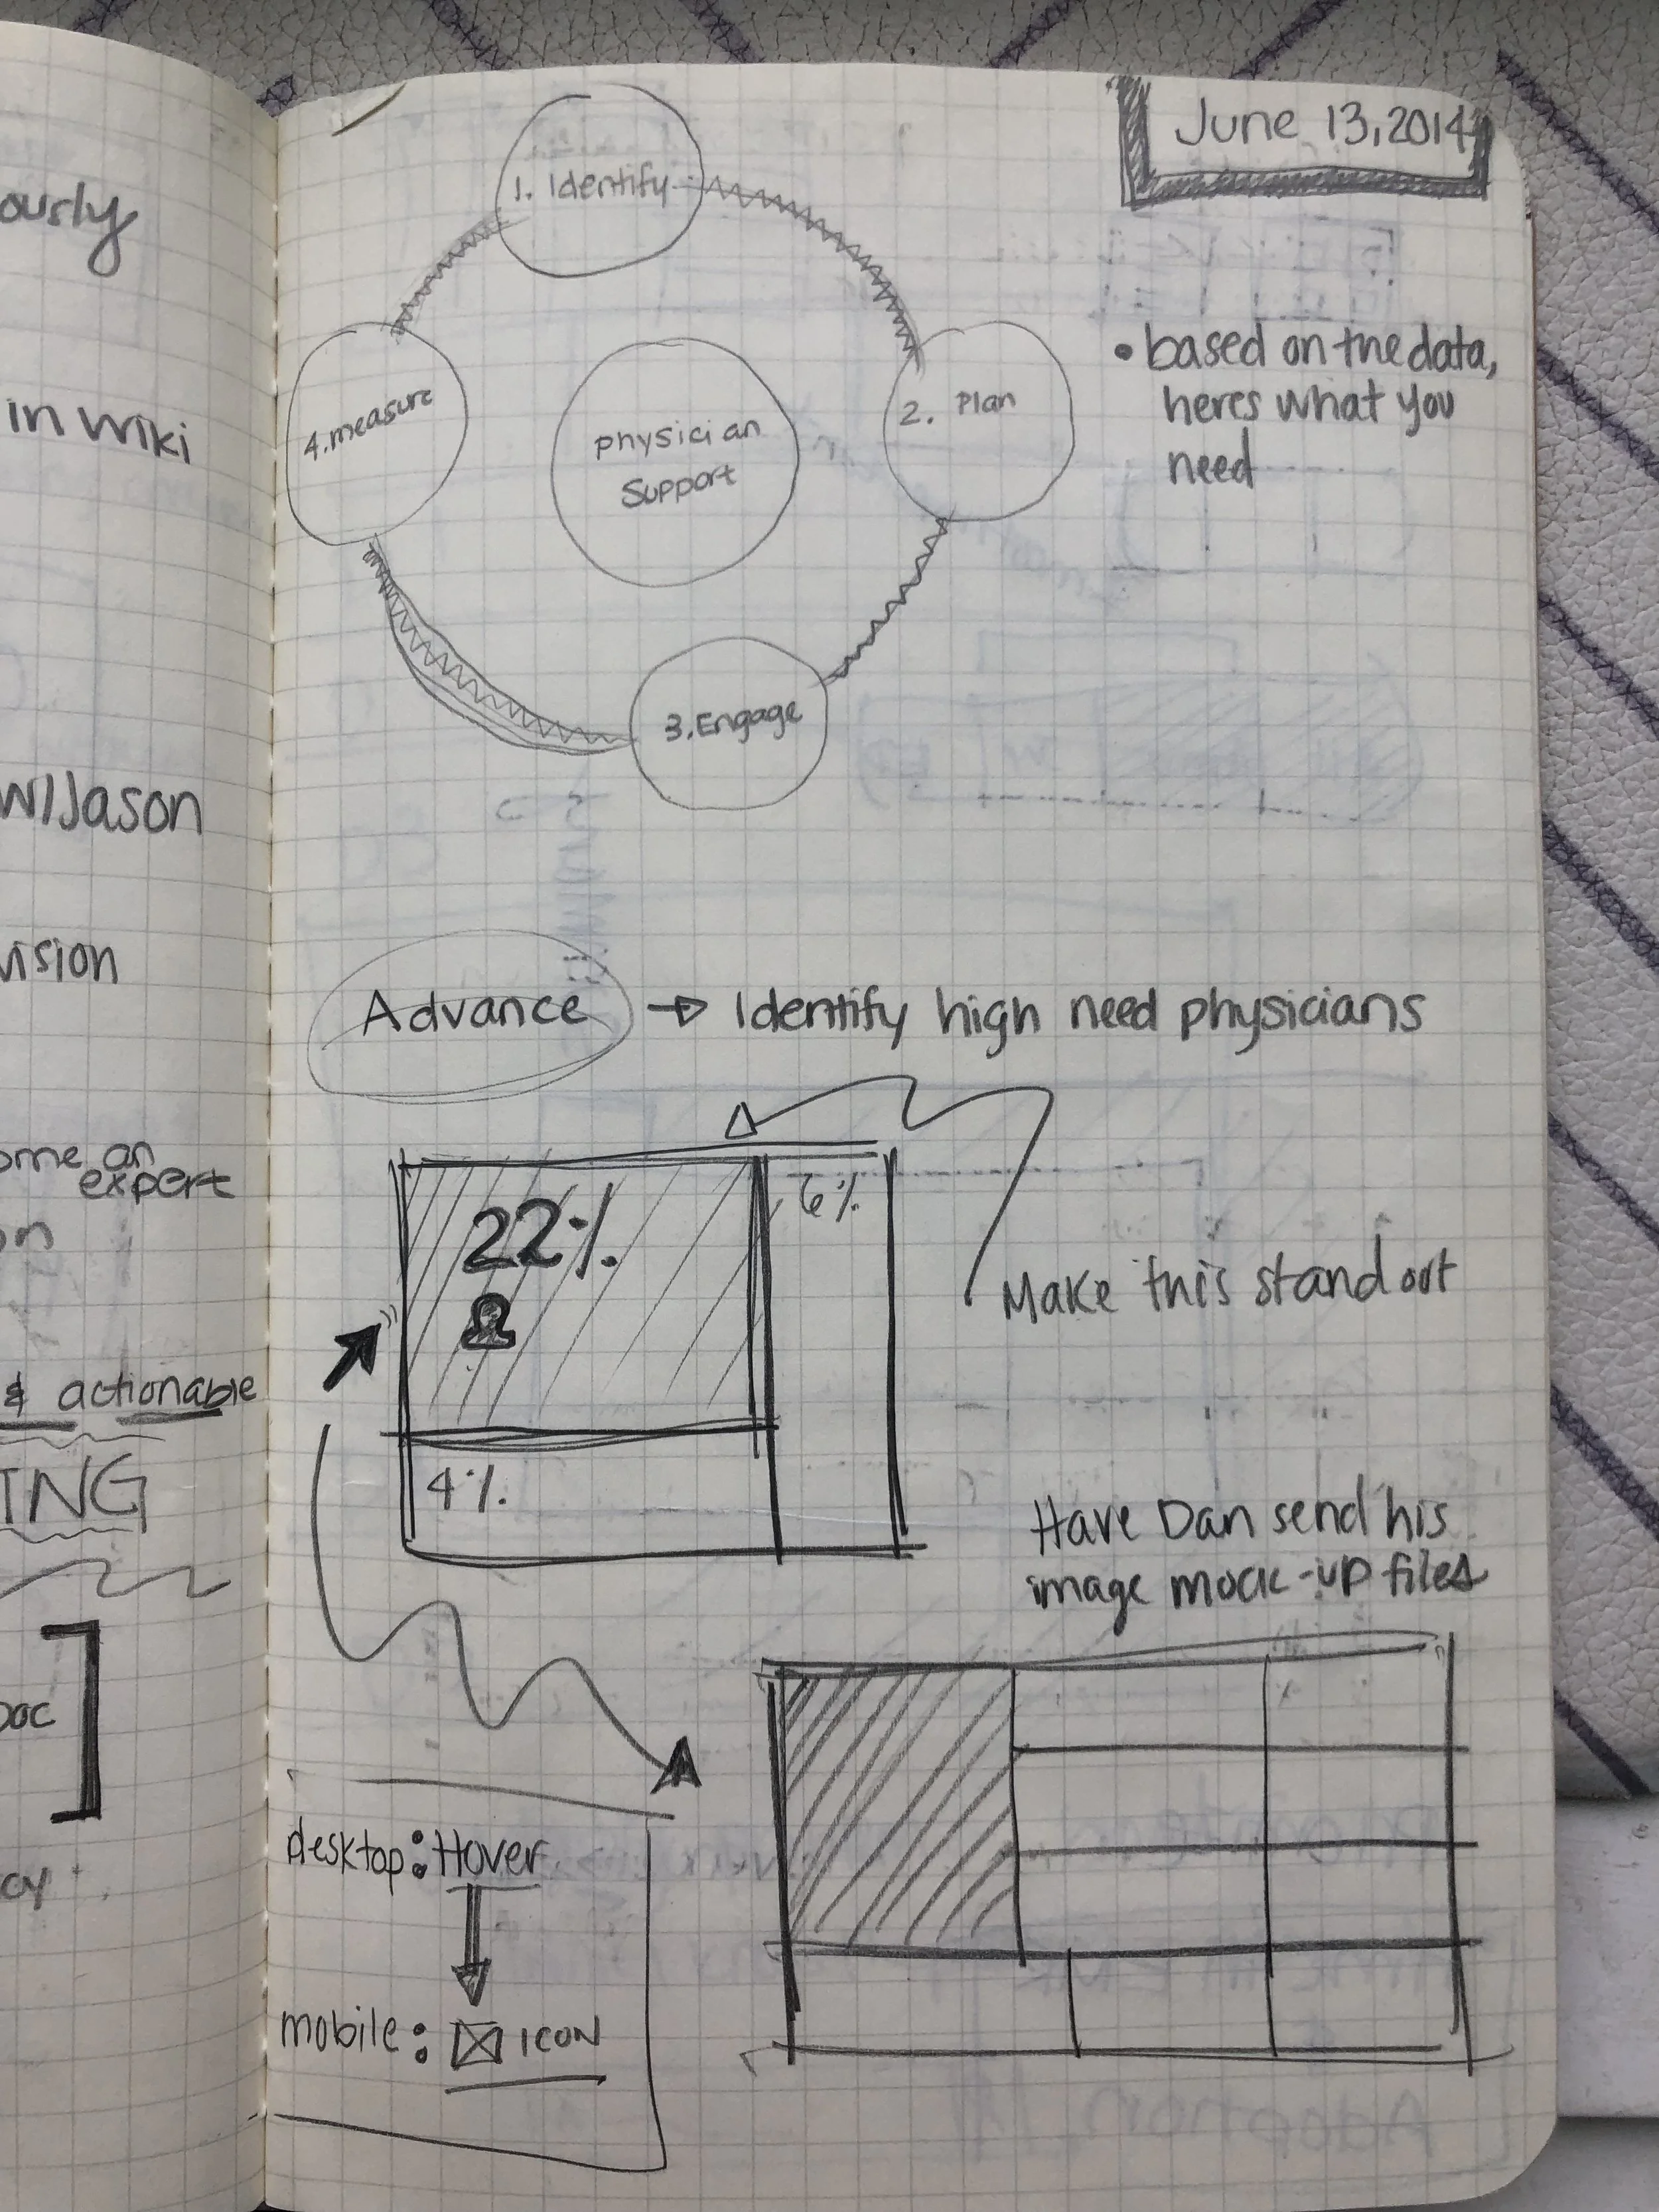 ously
in Wiki
w/Jason
vision
ome an
expert
on
& actionable
ING
oc
cy
June 13, 2014
1. Identify
2. Plan
3. Engage
4. measure
physician
Support
• based on the data,
heres what you
need
Advance → Identify high need physicians
22%
6%
4%
Make this stand out
Have Dan send his
image mock-up files
desktop: Hover
mobile: ICON
Adoption